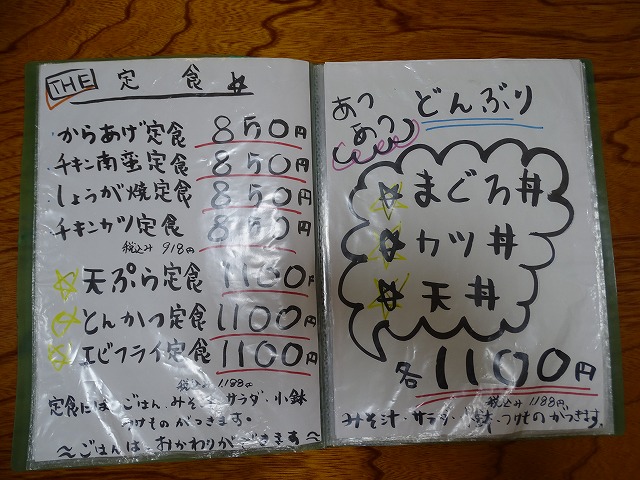 THE 定食
からあげ定食 850円
チキン南蛮定食 850円
しょうが焼定食 850円
チキンカツ定食 850円
税込み 918円
天ぷら定食 1100円
とんかつ定食 1100円
エビフライ定食 1100円
税込み 1188円
定食には、ごはん、みそ汁、サラダ、小鉢
つけものがつきます。
〜ごはんは、おかわりができます〜
あつ
あつ
どんぶり
まぐろ丼
カツ丼
天丼
各1100円
税込み 1188円
みそ汁・サラダ・小鉢・つけものがつきます。